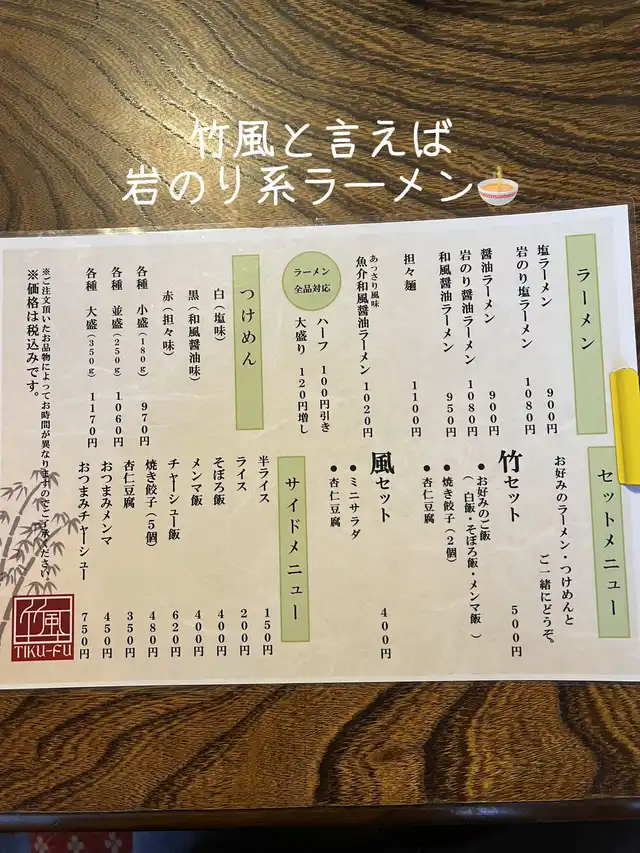 竹風と言えば
岩のり系ラーメン🍜
ラーメン
塩ラーメン 900円
岩のり塩ラーメン 1080円
醤油ラーメン 900円
岩のり醤油ラーメン 1080円
和風醤油ラーメン 950円
担々麺 1100円
あっさり風味
魚介和風醤油ラーメン 1020円
ラーメン
全品対応
ハーフ 100円引き
大盛り 120円増し
つけめん
白（塩味）
黒（和風醤油味）
赤（担々味）
各種 小盛（180g） 970円
各種 並盛（250g） 1060円
各種 大盛（350g） 1170円
※ご注文頂いたお品物によってお時間が異なりますのでご了承ください。
※価格は税込みです。
セットメニュー
お好みのラーメン・つけめんと
ご一緒にどうぞ。
竹セット 500円
●お好みのご飯
（白飯・そぼろ飯・メンマ飯）
●焼き餃子（2個）
●杏仁豆腐
風セット 400円
●ミニサラダ
●杏仁豆腐
サイドメニュー
半ライス 150円
ライス 200円
そぼろ飯 400円
メンマ飯 400円
チャーシュー飯 620円
焼き餃子（5個） 480円
杏仁豆腐 350円
おつまみメンマ 450円
おつまみチャーシュー 750円
竹風
TIKU-FU